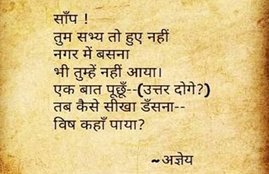 साँप !
तुम सभ्य तो हुए नहीं
नगर में बसना
भी तुम्हें नहीं आया।
एक बात पूछूँ--(उत्तर दोगे?)
तब कैसे सीखा डँसना--
विष कहाँ पाया?
~अज्ञेय